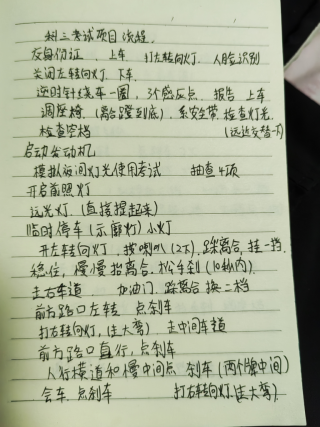 科三考试项目流程.
交身份证. 上车. 打左转向灯. 人脸识别
关闭左转向灯. 下车.
逆时针绕车一圈, 3个感应点. 报告 上车
调座椅. (离合蹬到底). 系安全带. 检查灯光.
检查空档 (远近交替一下)
启动发动机
模拟夜间灯光使用考试 抽查4项
开启前照灯
远光灯. (直接提起来)
临时停车 (示廓灯) 小灯
开左转向灯, 按喇叭 (2下), 踩离合, 挂一挡.
稳住, 慢慢抬离合. 松手刹 (10秒内).
走右车道. 加油门. 踩离合换二档
前方路口左转 点刹车
打右转向灯, (走大弯) 走中间车道
前方路口直行, 点刹车
人行横道和慢中间点 刹车 (两个牌中间)
会车 点刹车 打右转向灯. (走大弯)